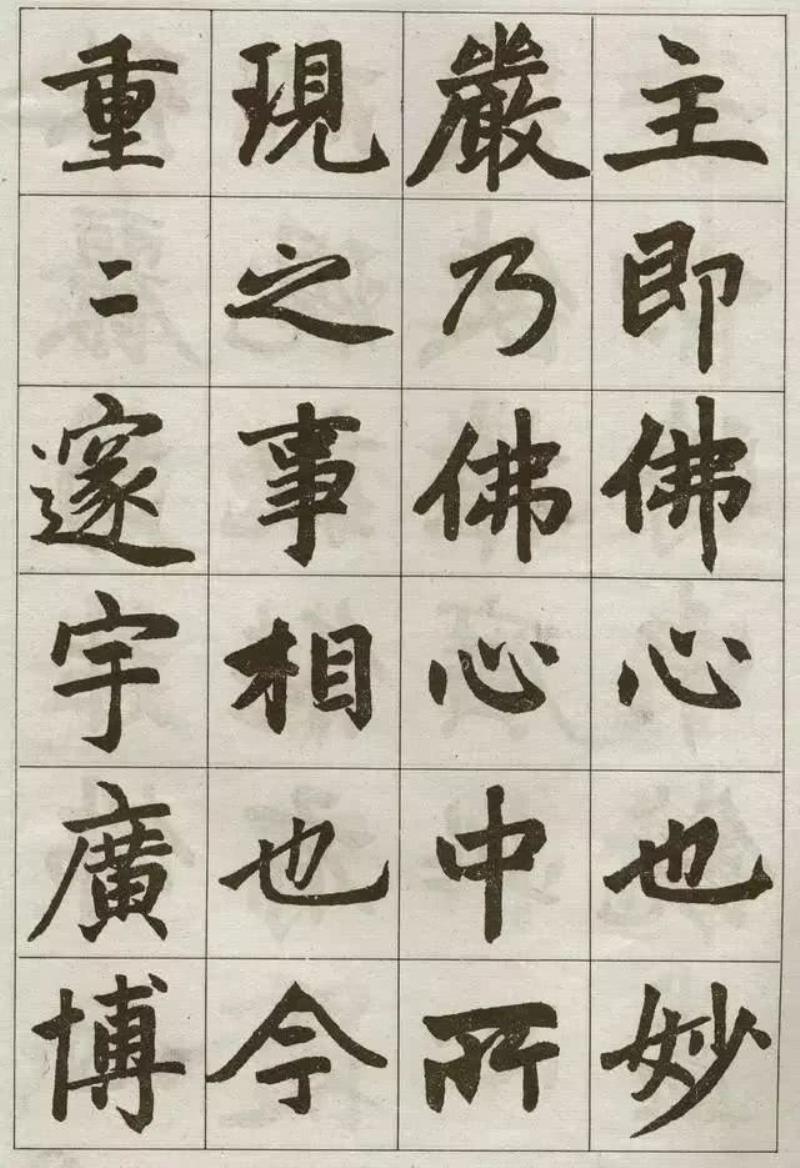 主即佛心也妙
嚴乃佛心中所
現之事相也今
重二邃宇廣博